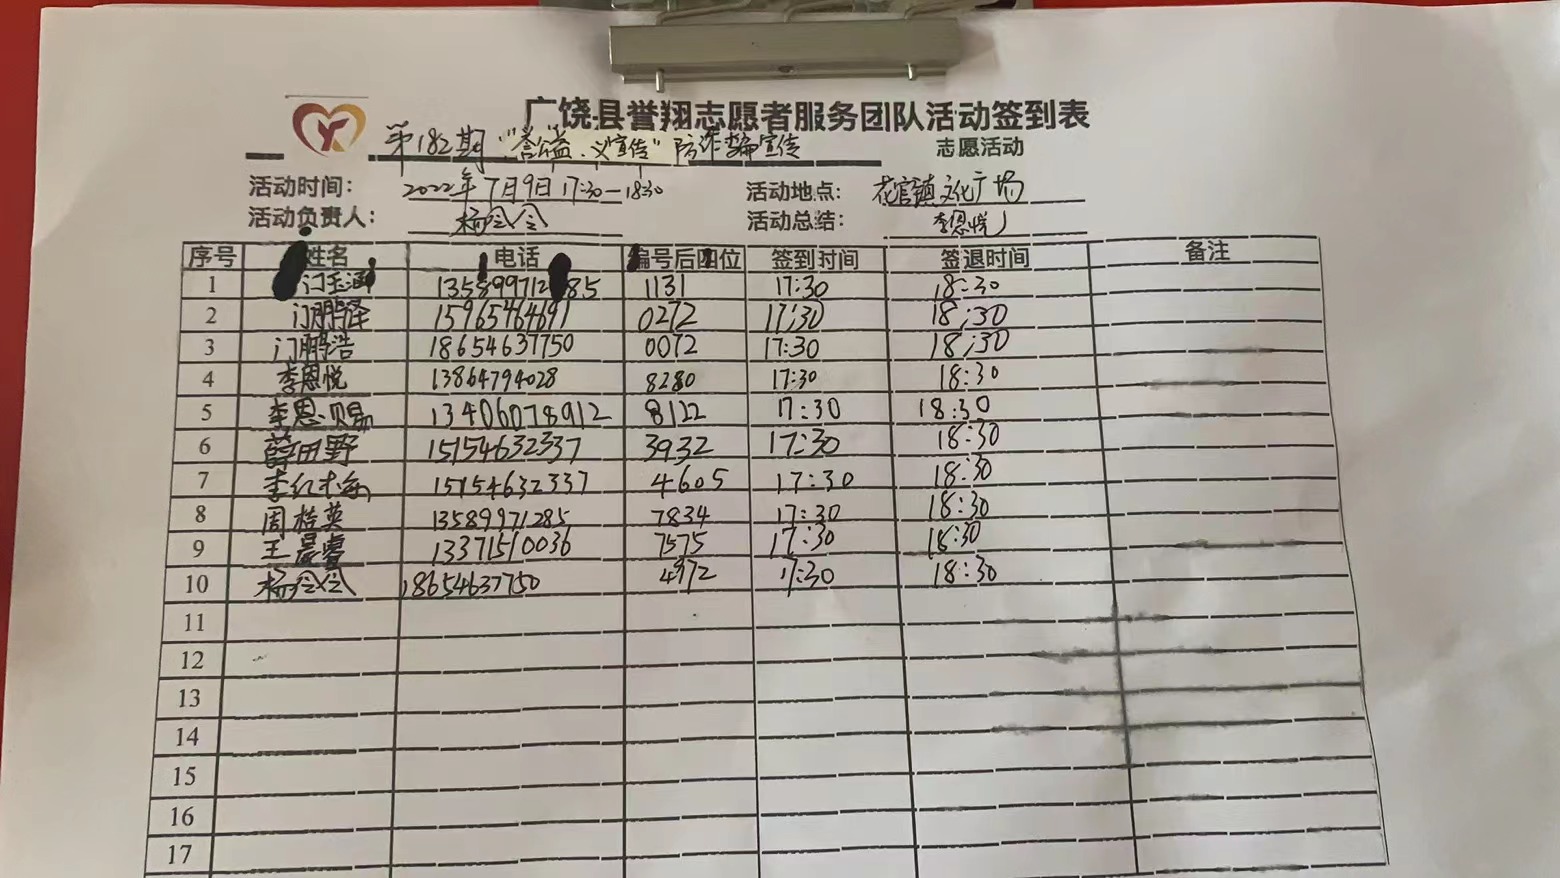 广饶县誉翔志愿者服务团队活动签到表
第182期"誉公益、义宣传"防诈骗宣传 志愿活动
活动时间: 2022年7月9日17:30-18:30 活动地点: 花官镇文化广场
活动负责人: 杨令令 活动总结: 李恩悦
序号 姓名 电话 编号后四位 签到时间 签退时间 备注
1 门玉涵 135899712 85 1131 17:30 18:30
2 门鹏泽 15965464691 0272 17:30 18:30
3 门鹏浩 18654637750 0072 17:30 18:30
4 李恩悦 13864794028 8280 17:30 18:30
5 李恩赐 13406078912 8122 17:30 18:30
6 薛田野 15154632337 3932 17:30 18:30
7 李红梅 15154632337 4605 17:30 18:30
8 周桂英 13589971285 7834 17:30 18:30
9 王晨睿 13371510036 7575 17:30 18:30
10 杨令令 18654637750 4972 17:30 18:30
11
12
13
14
15
16
17